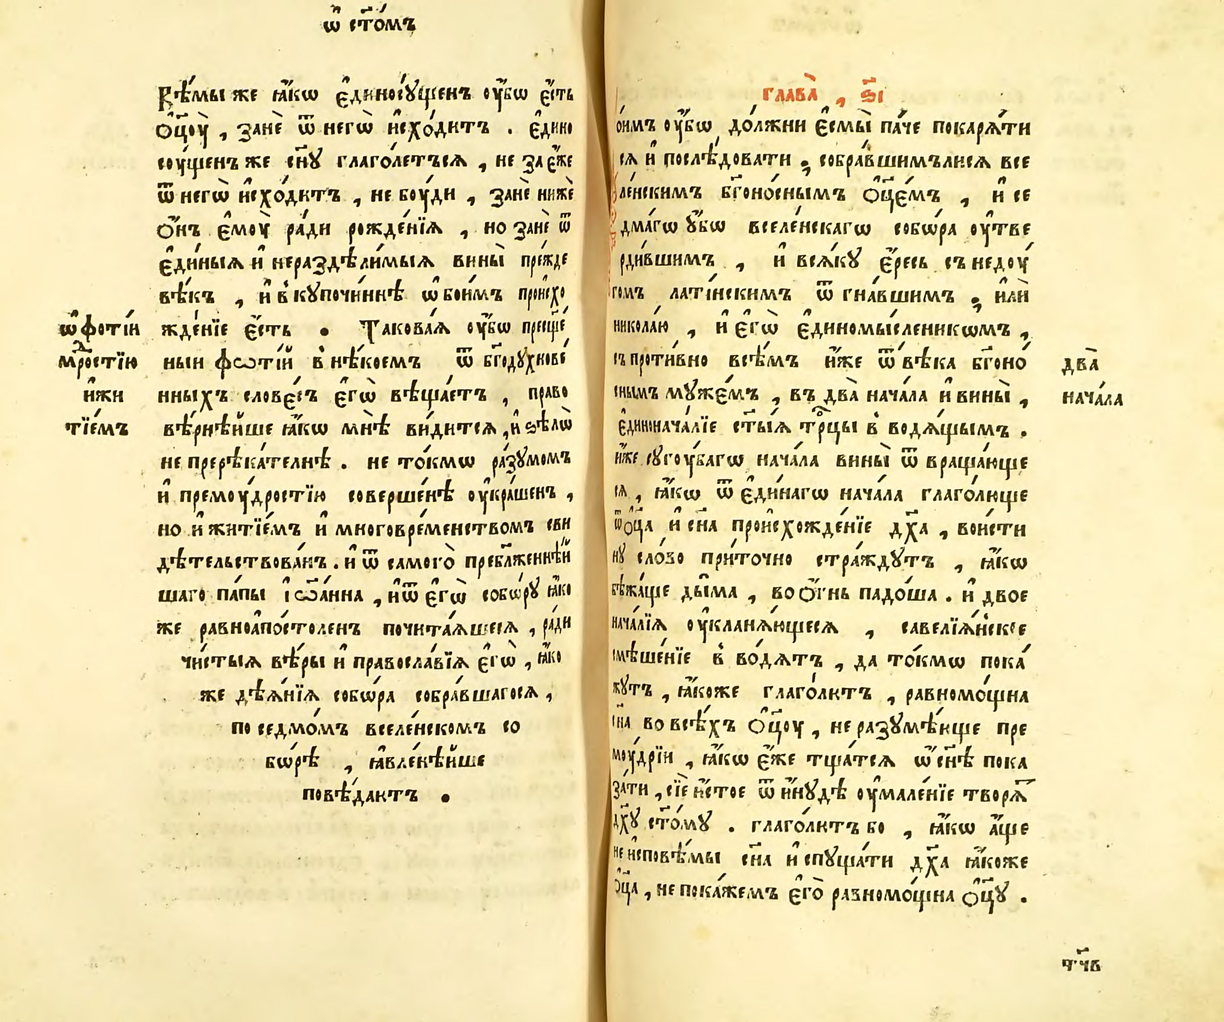 ѿ ст҃о́мъ
Вѣ́мы же ꙗ҆́кѡ є҆диносу́щенъ ᲂу҆́бѡ є҆́сть
ѻ҆ц҃оу̀ , занѐ ѿ негѡ̀ и҆схо́дитъ . є҆дино
соу́щенъ же сн҃у глаго́летъсѧ , не за є҆́же
ѿ негѡ̀ и҆схо́дитъ , не боу́ди , занѐ нижѐ
ѻ҆́нъ є҆моу̀ ра́ди рожде́нїѧ , но занѐ ѿ
є҆ди́ныѧ и҆ нераздѣли́мыѧ вины̀ пре́жде
вѣ́къ , и҆ в̾кꙋпочи́ннѣ ѿ ѻбои́мъ происхо
жде́нїе є҆́сть . Такова́ѧ ᲂу҆́бѡ преще́
ныи фѡті́й в̾ нѣ́коемъ ѿ бг҃одꙋхнове́
нныхъ слове́съ є҆гѡ̀ вѣща́етъ , право
вѣ́рнѣйше ꙗ҆́кѡ мнѣ̀ ви́дитсѧ , и҆ ѕѣлѡ̀
не прерѣка́телнѣ . не то́кмѡ ра́зꙋмомъ
и҆ премоу́дростїю соверше́нѣ ᲂу҆кра́шенъ ,
но и҆ житїе́мъ и҆ многовре́менствомъ сви
дѣ́тельствованъ . и҆ ѿ самого̀ пребл҃же́ннѣй
шаго па́пы і҆ѡа́нна , и҆ ѿ є҆гѡ̀ собѡ́рꙋ ꙗ҆́ко
же равноапо́столенъ почита́ѧшесѧ , ра́ди
чи́стыѧ вѣ́ры и҆ правосла́вїѧ є҆гѡ̀ , ꙗ҆́ко
же дѣѧ́нїѧ собѡ́ра собра́вшагосѧ ,
по седмо́мъ вселе́нскомъ со
бѡ́рѣ , ꙗ҆вле́нѣйше
повѣ́даютъ .
ѿ фоті́и
мр҃остїю
и҆ жи
тїе́мъ
глава̀ , ѕ҃і
оимъ ᲂу҆́бѡ до́лжни є҆смы̀ па́че покарѧ́ти
сѧ и҆ послѣ́довати , собра́вшимъ лисѧ все
ле́нскимъ бг҃оно́снымъ ѻ҆ц҃е́мъ , и҆ се
дма́гѡ ᲂу҆́бѡ вселе́нскагѡ собѡ́ра ᲂу҆тве
рди́вшимъ , и҆ всѧ́кꙋ є҆́ресь съ недоу́
гомъ лати́нскимъ ѿгна́вшимъ , и҆лѝ
никола́ю , и҆ є҆гѡ̀ є҆диномы́сленикѡмъ ,
съпроти́вно всѣ́мъ и҆́же ѿ вѣ́ка бг҃оно́
снымъ мꙋже́мъ , въ два̀ нача́ла и҆ вины̀ ,
є҆динонача́лїе ст҃ы́ѧ тр҃цы в̾ водѧ́щымъ .
и҆́же сꙋгоу́багѡ нача́ла вины̀ ѿвраща́юще
сѧ , ꙗ҆́кѡ ѿ є҆ди́нагѡ нача́ла глаго́люще
ѿ ѻ҆ц҃а и҆ сн҃а происхожде́нїе дх҃а , вои́сти
нꙋ сло́во при́точно стра́ждꙋтъ , ꙗ҆́кѡ
бѣжа́ще ды́ма , во ѻ҆́гнь падо́ша . и҆ двое
нача́лїѧ ᲂу҆кланѧ́ющесѧ , савелїѧ́нское
смѣше́нїе в̾ во́дѧтъ , да то́кмѡ пока́
жꙋтъ , ꙗ҆́коже глаго́лютъ , равномо́щна
сн҃а во всѣ́хъ ѻ҆ц҃оу , не разꙋмѣ́юще пре
моу́дрїи , ꙗ҆́кѡ є҆́же тща́тсѧ ѿ сн҃ѣ пока
за́ти , сїѐ и҆́стое ѿ и҆нꙋ́дѣ ᲂу҆мале́нїе творѧ́т
дх҃ꙋ ст҃о́мꙋ . глаго́лютъ бо , ꙗ҆́кѡ а҆́ще
не и҆сповѣ́мы сн҃а и҆спꙋща́ти дх҃а ꙗ҆́коже
ѻ҆ц҃а , не пока́жемъ є҆го̀ равномо́щна ѻ҆ц҃ꙋ .
два̀
нача́ла
тч҃в